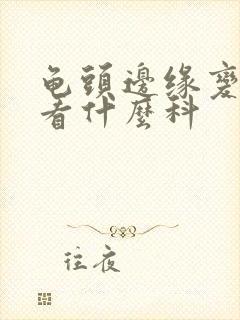 龟頭邊缘
看什麼科
往夜